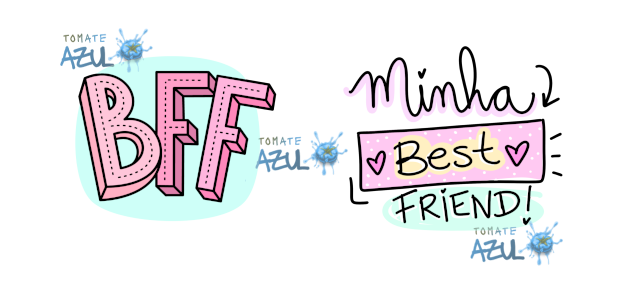 TOMATE
AZUL
BFF
TOMATE
AZUL
Minha
Best
FRiEND!
TOMATE
AZUL